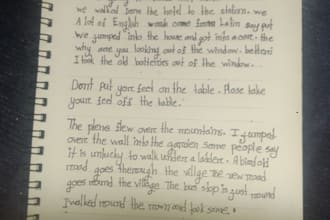 we walked from the hotel to the station. we
A lot of English words come from Latin say put
we jumped into the house and got into a car. the
why are you looking out of the window.
I took the old batteries out of the window..
Don't put your feet on the table. Please take
your feet off the table.
The plane flew over the mountains. I jumped
over the wall into the garden some people say
it is unlucky to walk under a ladder. A
road goes through the village The new road
goes round the village. The bus stop is just round
I walked round the room and took some.